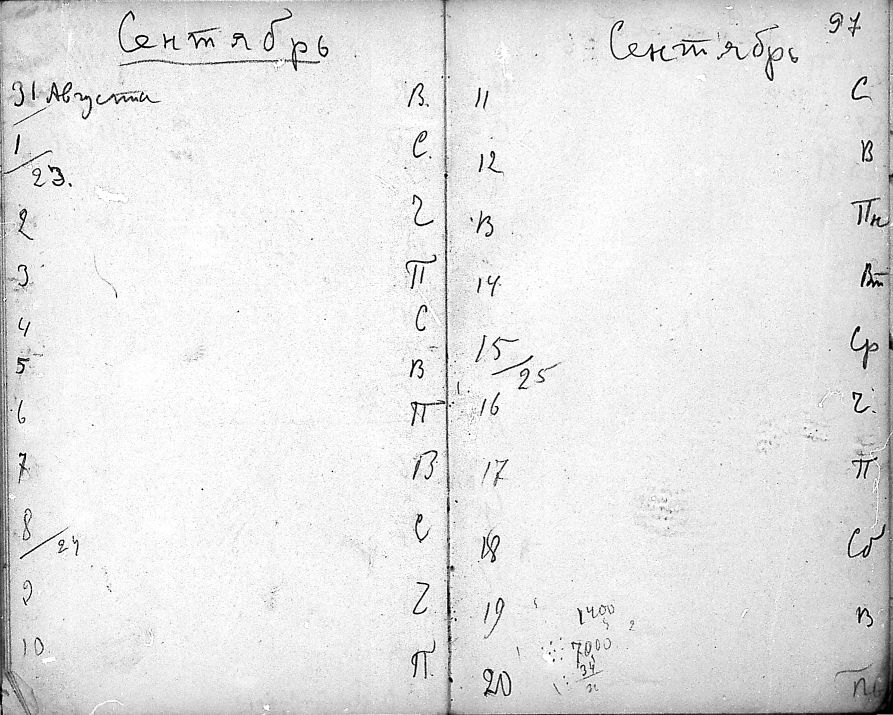 Сентябрь
31 Августа В.
1/23. С.
2 Ч
3 П
4 С
5 В
6 П
7 В
8/24 С
9 Ч
10 П.
97
Сентябрь
11 С
12 В
13 Пн
14 Вт
15/25 Ср
16 Ч.
17 П
18 Сб
19 В
1400
5
7000
34
20 П